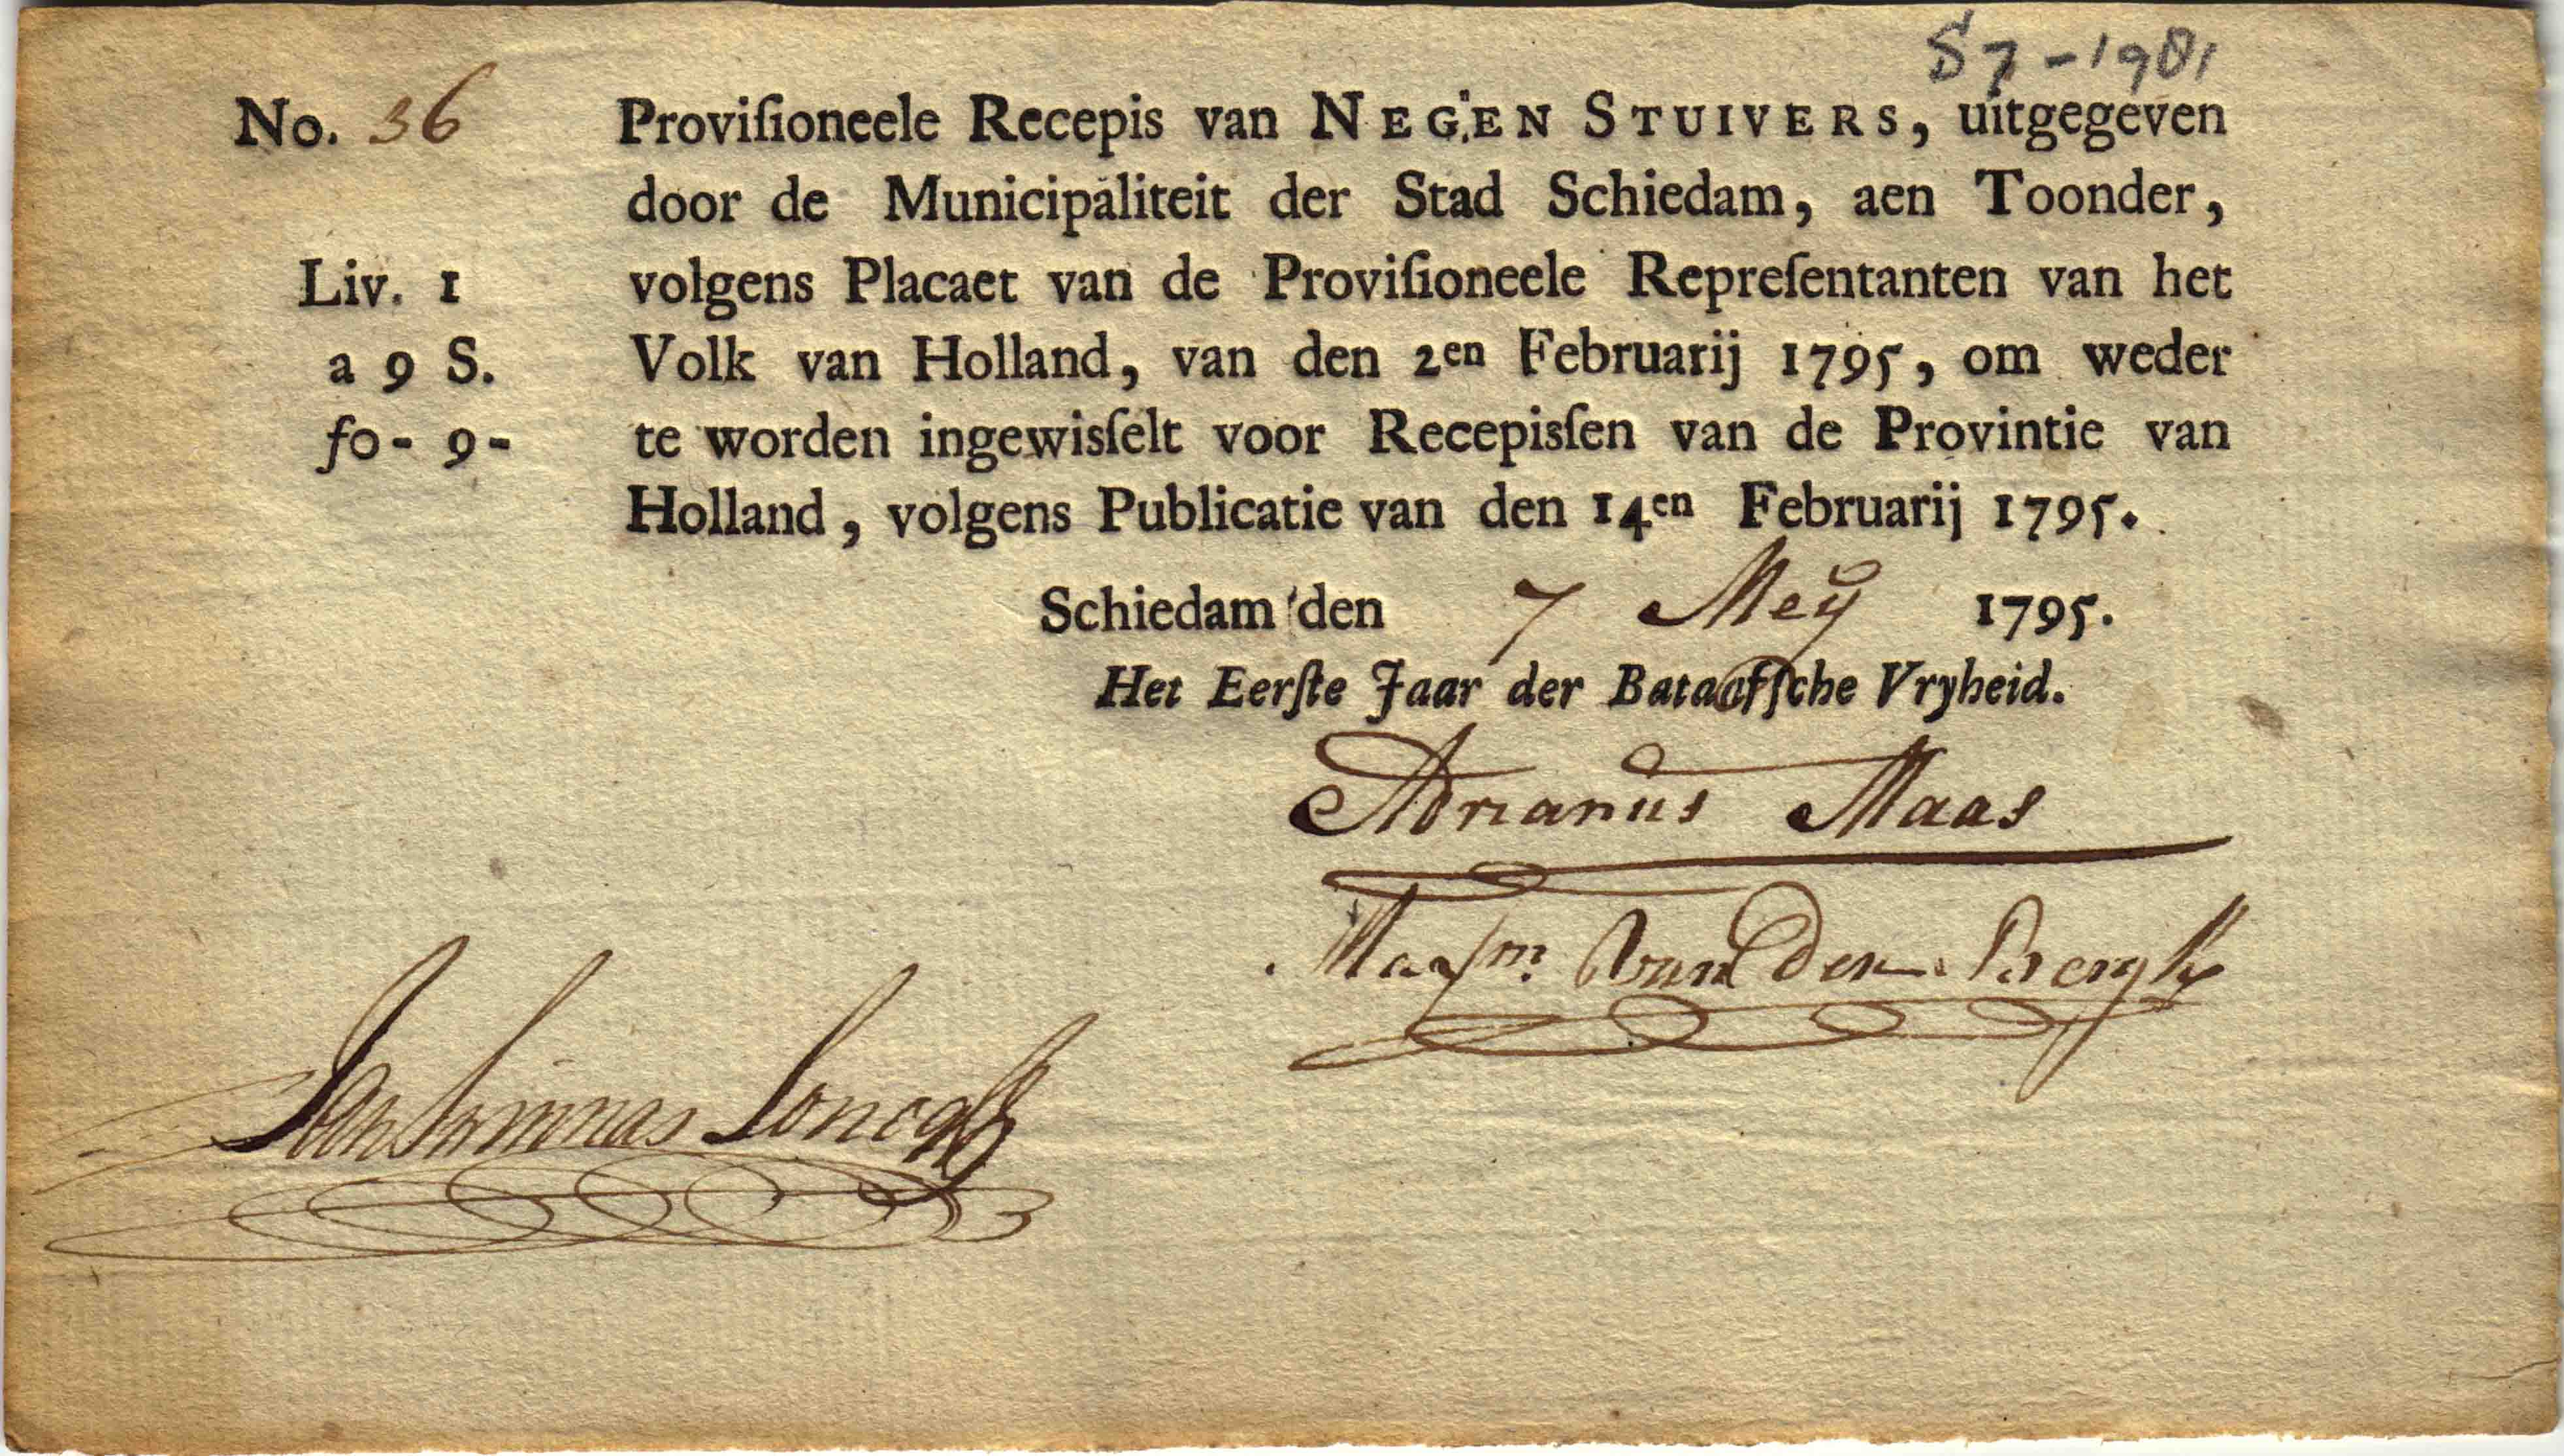 87-1981
No. 36 Proviſioneele Recepis van NEGEN STUIVERS, uitgegeven
door de Municipaliteit der Stad Schiedam, aen Toonder,
Liv. 1 volgens Placaet van de Proviſioneele Repreſentanten van het
a 9 S. Volk van Holland, van den 2en Februarij 1795, om weder
fo- 9- te worden ingewisſelt voor Recepisſen van de Provintie van
Holland, volgens Publicatie van den 14en Februarij 1795.
Schiedam den 7 Mey 1795.
Het Eerſte Jaar der Bataafſche Vryheid.
Adrianus Maas
van den Bergh
Jan